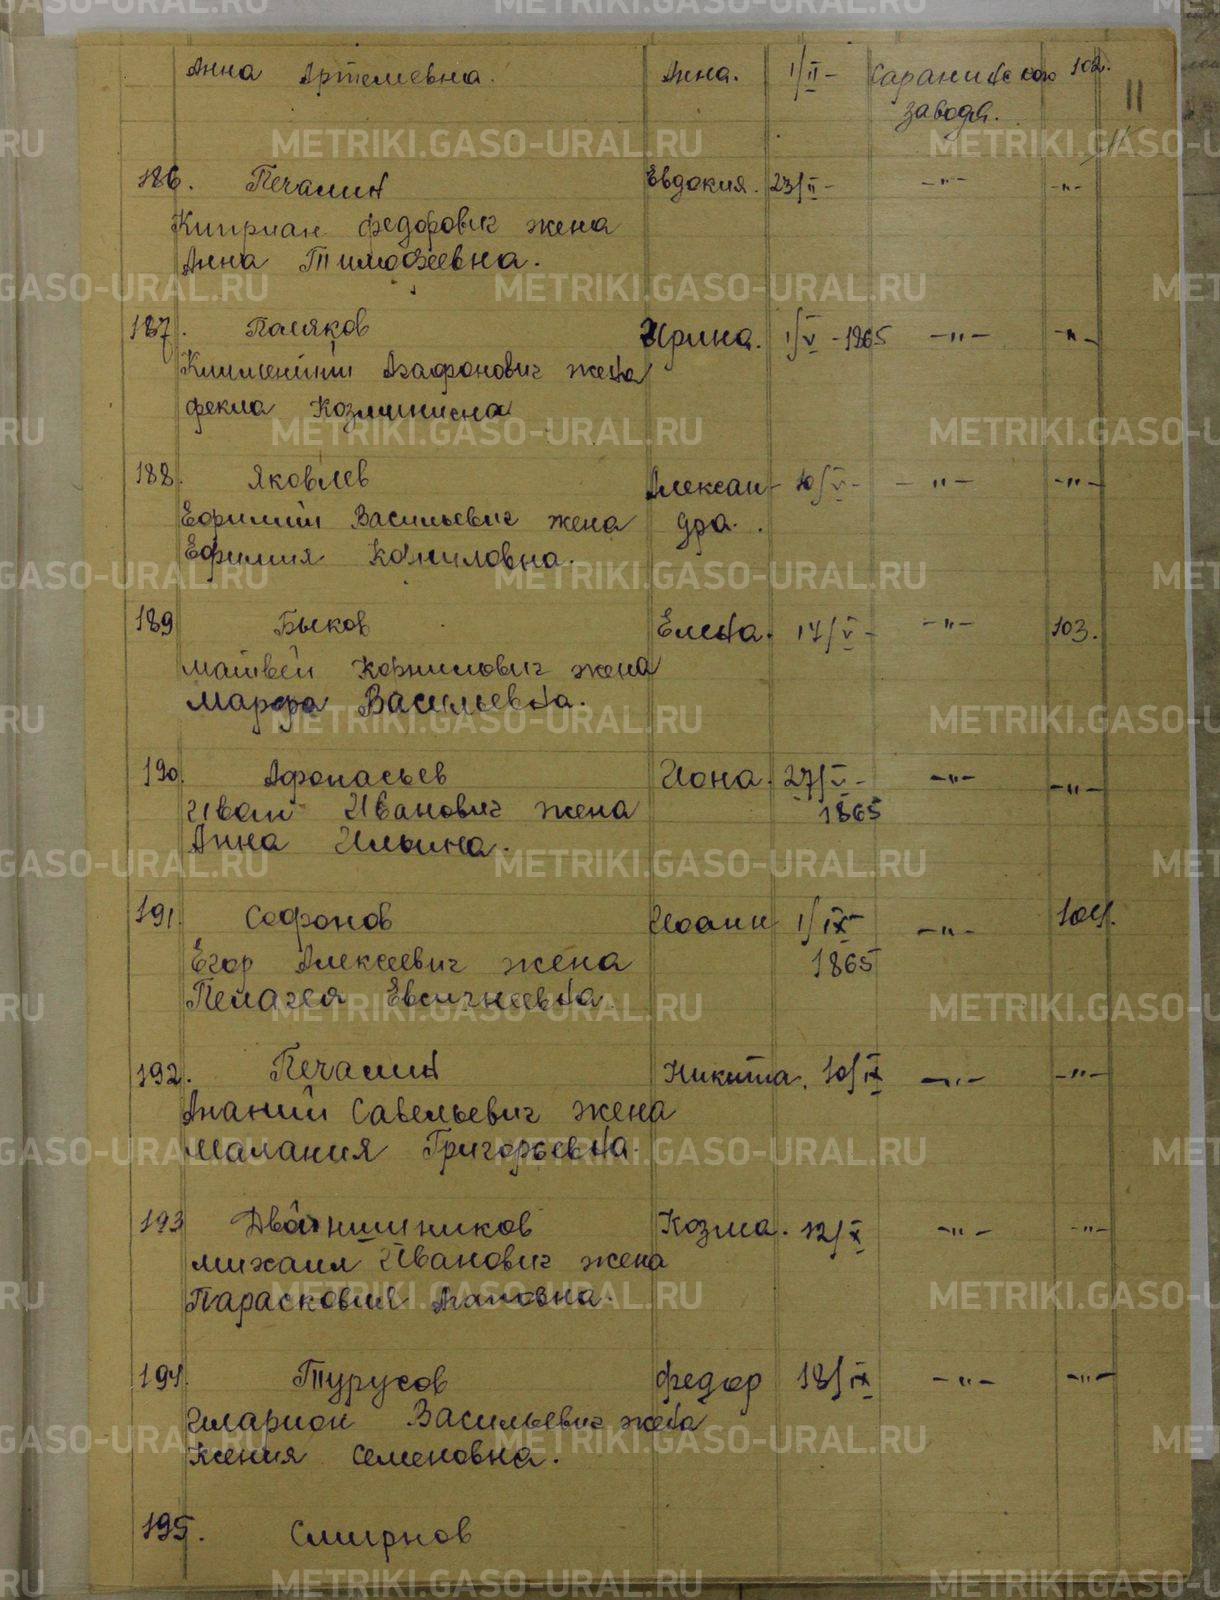 Анна Артемиевна. Анна. 1/II - Саранинского 102.
завода. 11
186. Печалин Евдокия. 23/II - -"- -"-
Киприан Федорович жена
Анна Тимофеевна.
187. Поляков Ирина. 1/V - 1865 -"- -"-
Климентий Агафонович жена
Фекла Козминисна
188. Яковлев Алексан- 10/V - -"- -"-
Ефимий Васильевич жена дра.
Ефимия Корниловна.
189 Быков Елена. 17/V - -"- 103.
Матвей Корнилович жена
Марфа Васильевна.
190. Афонасьев Иона. 27/V - -"- -"-
Иван Иванович жена 1865
Анна Ильина.
191. Софонов Иоанн 1/IX - -"- 104.
Егор Алексеевич жена 1865
Пелагея Евсигнеевна.
192. Печалин Никита. 10/IX -"- -"-
Ананий Савельевич жена
Малания Григорьевна.
193 Двойнишников Козма. 12/X -"- -"-
Михаил Иванович жена
Парасковия Агаповна.
194. Турусов Федор 18/IX -"- -"-
Иларион Васильевич жена
Ксения Семеновна.
195. Смирнов
METRIKI.GASO-URAL.RU